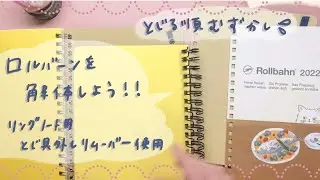 とじる順むずかしい
ロルバーンを
解体しよう!!
リングノート用
とじ具外しリムーバー使用
Rollbahn 2022